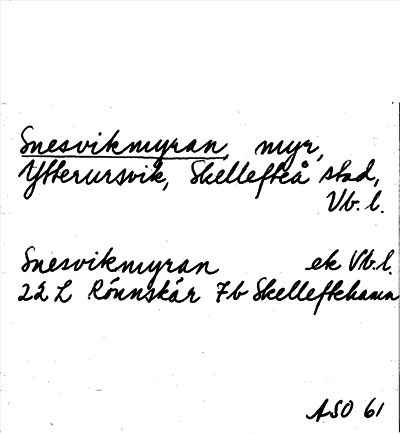 Snesvikmyran, myr,
Ytterursvik, Skellefteå stad,
Vb. l.
Snesvikmyran ek Vb. l.
22 L Rönnskär 7b Skelleftehamn
ASO 61